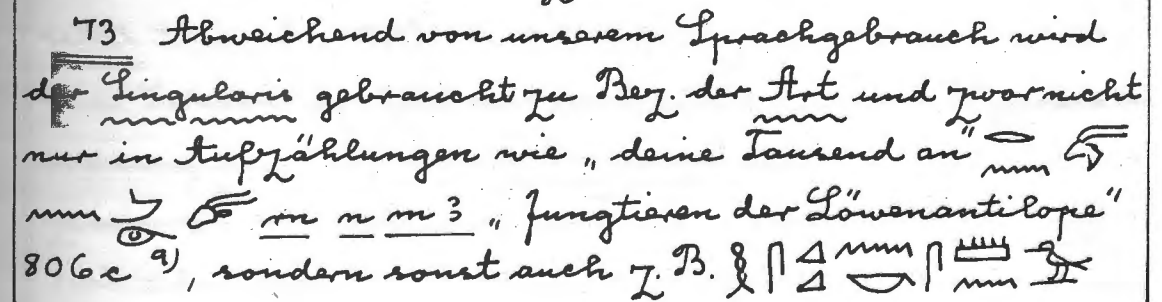 73 Abweichend von unserem Sprachgebrauch wird
der Singularis gebraucht zu Bez. der Art und zwar nicht
nur in Aufzählungen wie „deine Tausend an" 𓂋𓈖
𓈖𓌳𓁹 rn n m3 „Jungtieren der Löwenantilope"
806c a), sondern sonst auch z. B. 𓎛𓋴𓈎𓈎𓈖𓎡𓋴𓏠𓈖